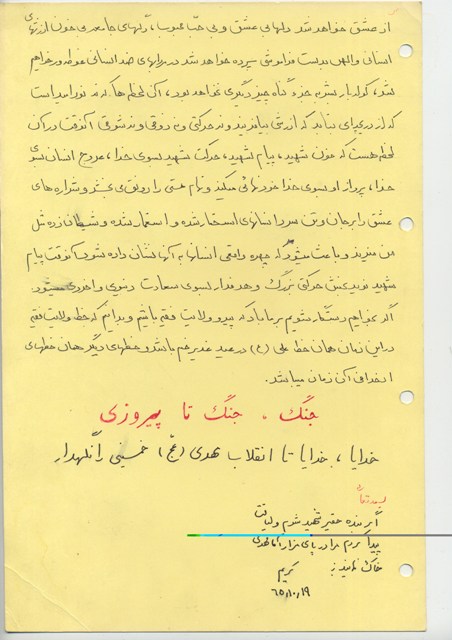 از عشق خواهد شد دلهای عشق و بی حبّ محبوب، رگهای جامعه بی خون ارزشهای
انسانی و الهی بدست فراموشی سپرده خواهد شد در مردابهای ضد انسانی غوطه ور خواهیم
شد، کوله بار بشر جز گناه چیز دیگری نخواهد بود، آن لحظه ها که نه نور امید است
که از دریچه‌ای بتابد که ارزش بیافریند و نه حرکتی و نه ذوقی و نه شوقی آنوقت در آن
لحظه هست که خون شهید، پیام شهید، حرکت شهید بسوی خدا، عروج انسان بسوی
خدا، پرواز او بسوی خدا خودنمائی میکند و تمام هستی را رونق می بخشد و شراره های
عشق را بر جان و تن سرد انسانهای استثمار شده و استعمار شده و شیطان زده مثل
من میزند و باعث میشود که چهره واقعی انسانها به آنها نشان داده شود آنوقت پیام
شهید نوید بخش حرکتی بزرگ و هدفدار بسوی سعادت دنیوی و اخروی میشود.
اگر بخواهیم رستگار شویم بر ما باد که پیرو ولایت فقیه باشیم و بدانیم که خط ولایت فقیه
در این زمان همان خط علی (ع) در عید غدیر خم باشد و خطهای دیگر همان خطهای
انحرافی آن زمان میباشد.
جنگ، جنگ تا پیروزی
خدایا، خدایا تا انقلاب مهدی (عج) خمینی را نگهدار
بسمه تعالی
اگر بنده حقیر شهید شدم و لیاقت
پیدا کردم مرا در پای مزار آقا مهدی
خاک نمایید
کریم
۶۵/۱۰/۱۹